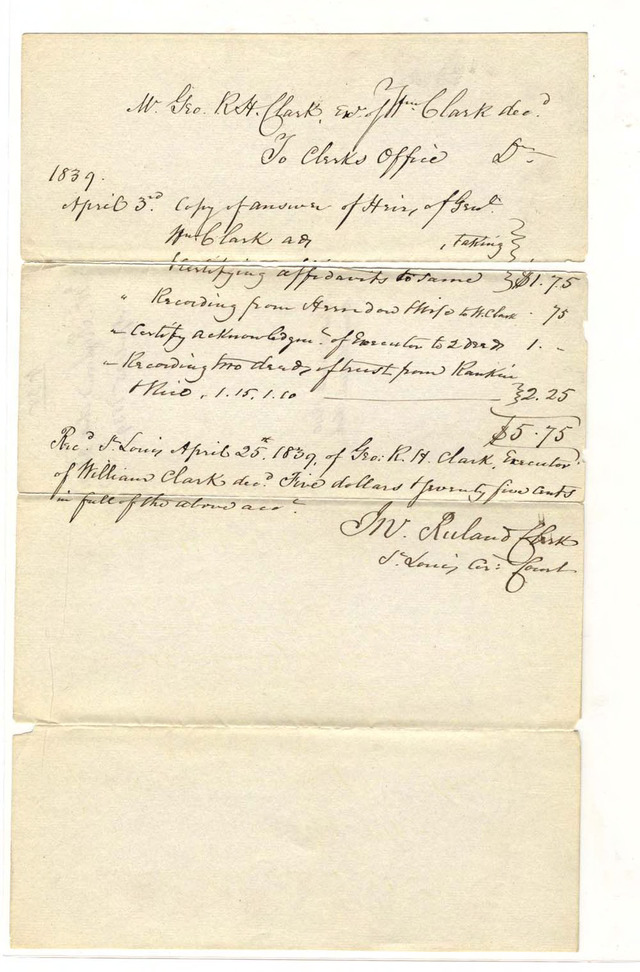 Mr. Geo. R. H. Clark, Exr. of Wm. Clark decd.
To Clerks Office Dr.
1839.
April 3rd. Copy of answer of Heirs, of Genl.
Wm. Clark ads , taking
Certifying affidavits to same $1.75
" Recording from Herndon & Wife to W. Clark . 75
" Certify acknowledgmt. of Executor to 2 deeds 1. -
" Recording two deeds of trust, from Rankin
& Rice , 1.15, 1.10 2.25
$5.75
Recd. St. Louis April 25th. 1839, of Geo: R. H. Clark, Executor
of William Clark decd. Five dollars & seventy five cents
in full of the above acct.
Jno. Ruland Clerk
St. Louis Cir: Court